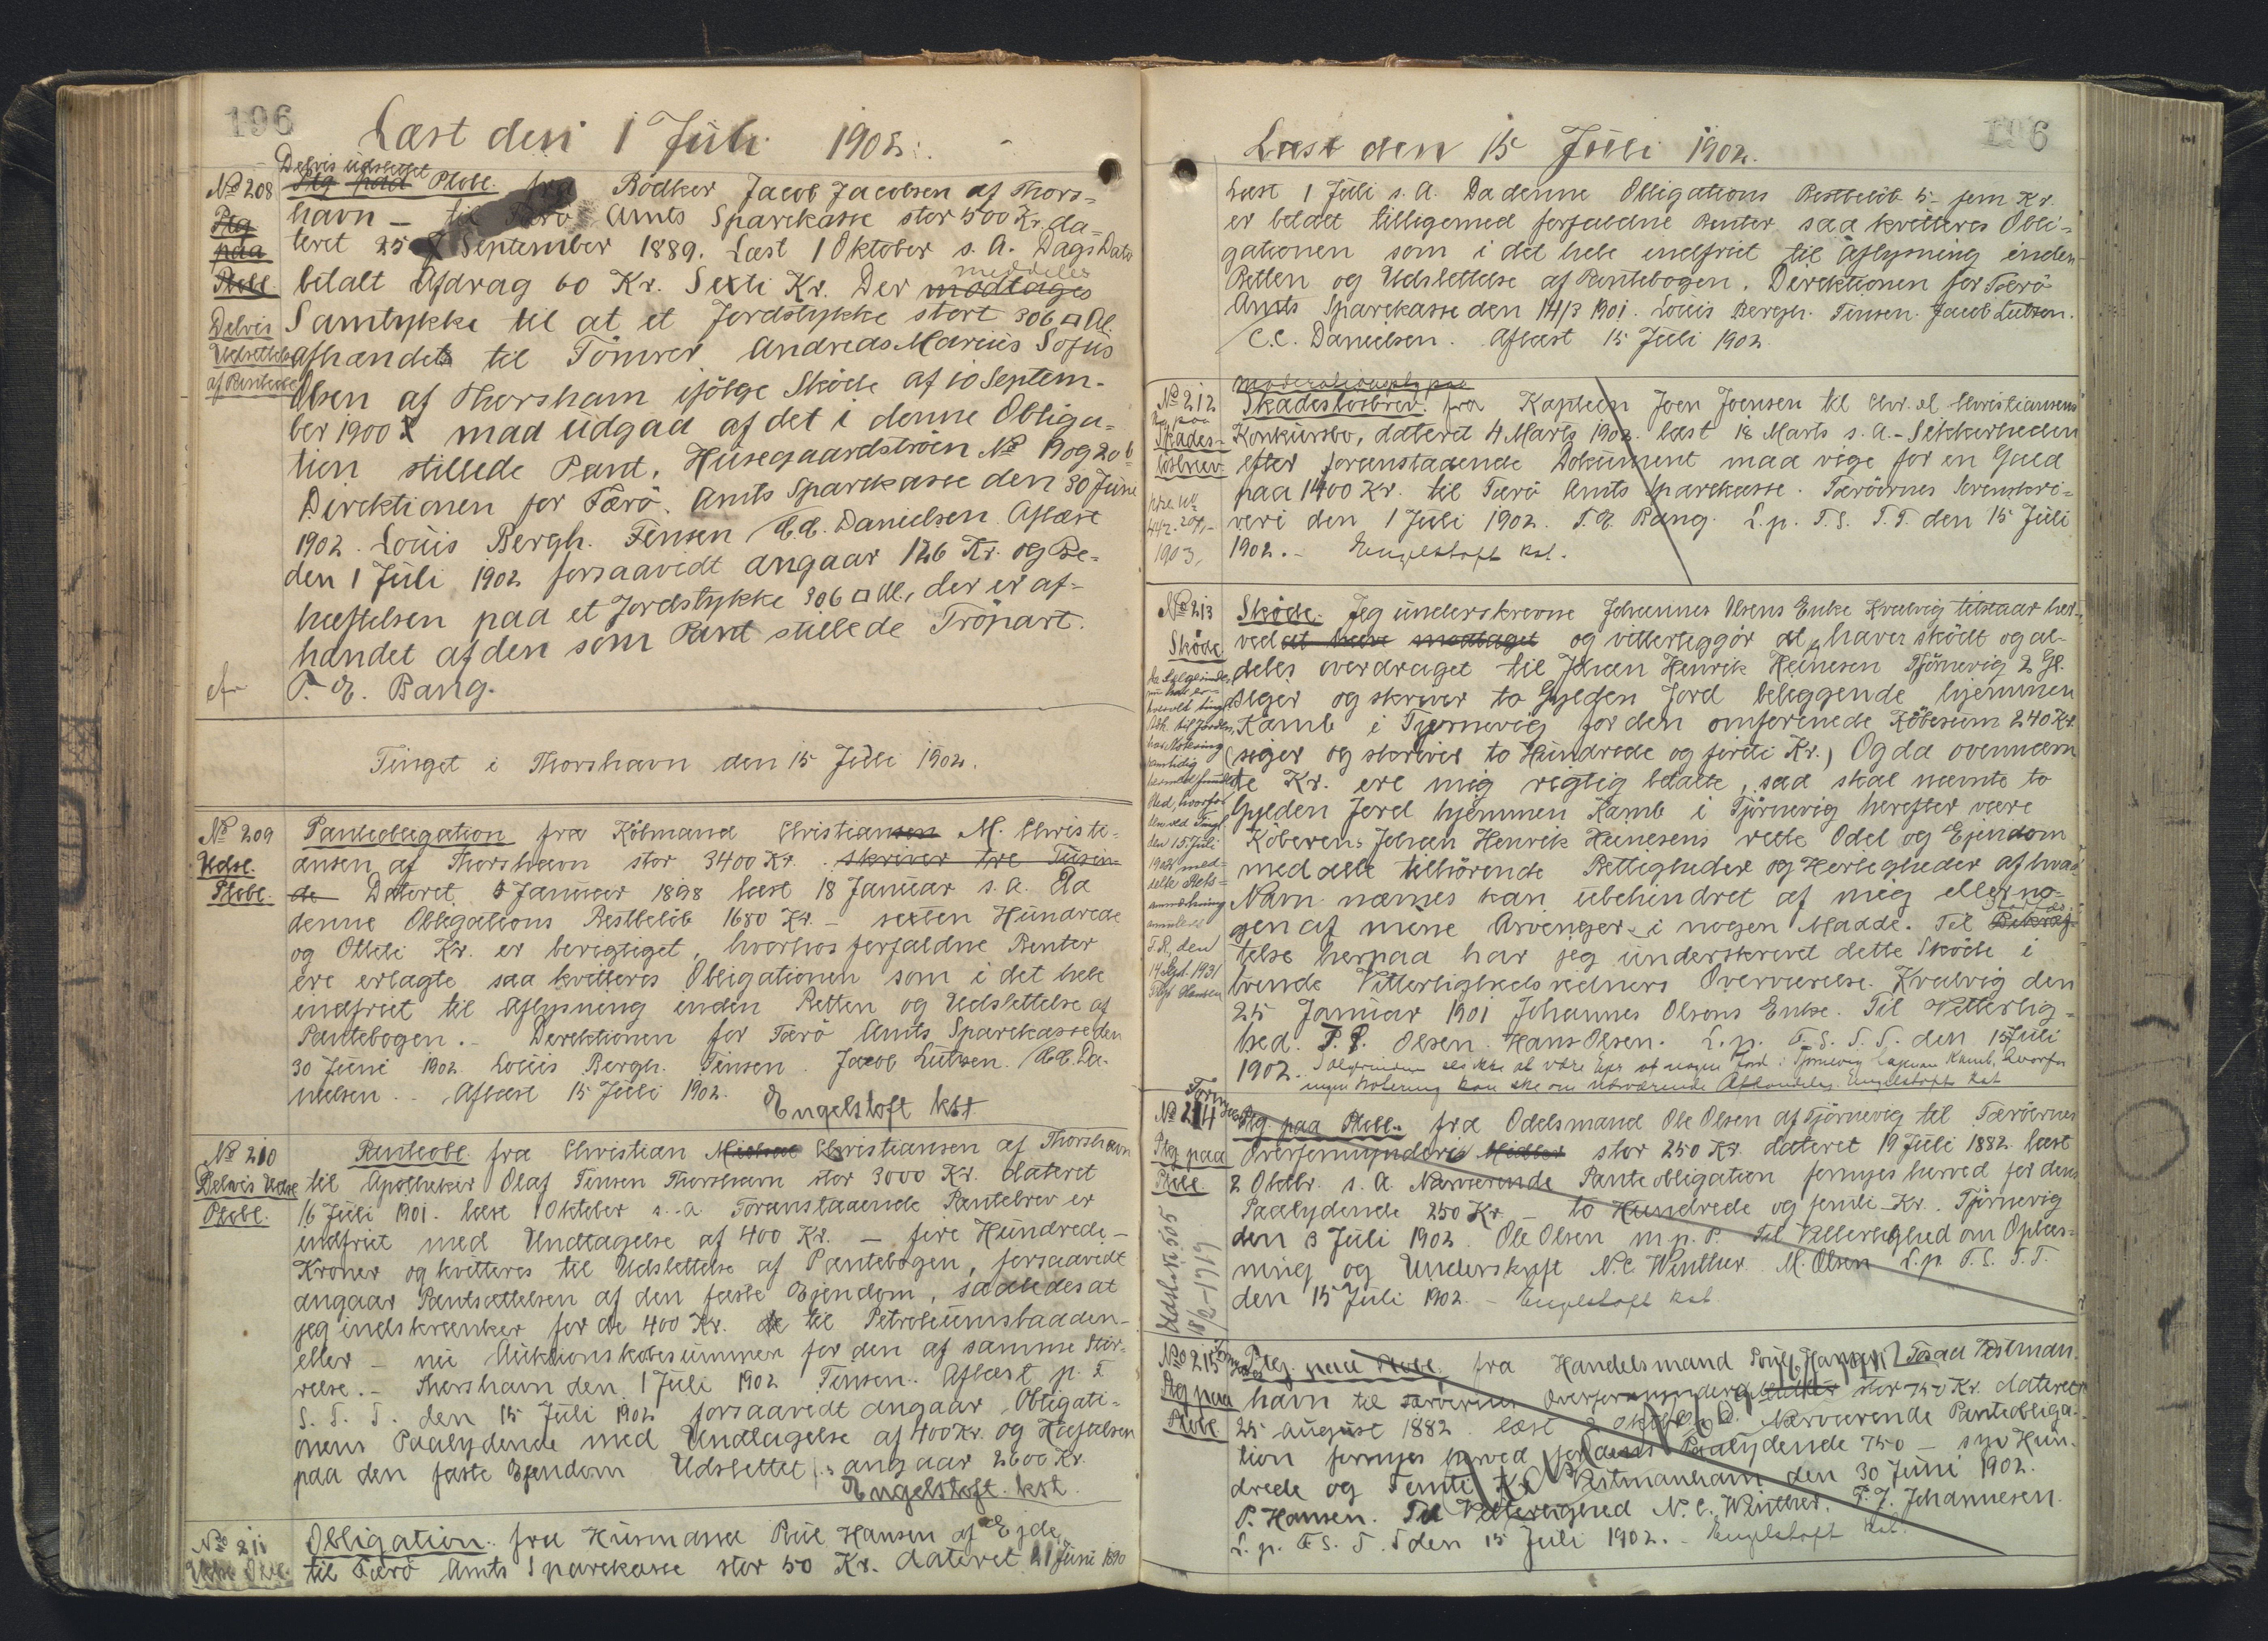 196
Læst den 1 Juli 1902.
Delvis udslettet
No 208 Ptg paa Ptobl. fra Bödker Jacob Jacobsen af Thors=
Ptg
paa
Ptobl.
havn - til Færö Amts Sparekasse stor 500 Kr. da=
teret 25 September 1889. Læst 1 Oktober s. A. Dags Dato
meddeles
betalt Afdrag 60 Kr. Sexti Kr. Der modtages
Delvis
Udslettelse
af Panteobl
Samtykke til at et Jordstykke stort 306 □ Al.
afhændet til Tömrer Andreas Marius Sofus
Olsen af Thorshavn ifölge Sköde af 10 Septem-
ber 1900 maa udgaa af det i denne Obliga=
tion stillede Pant, Husegaardströen No 19 og 20 b
Direktionen for Færö Amts Sparekasse den 30 Juni
1902. Louis Bergh. Finsen C.C. Danielsen Aflæst
den 1 Juli 1902 forsaavidt angaar 126 Kr. og Be-
hæftelsen paa et Jordstykke 306 □ Al., der er af-
hændet af den som Pant stillede Tröpart.
P. E. Bang.
Tinget i Thorshavn den 15 Juli 1902.
No 209
Udsl.
Ptobl.
Panteobligation fra Köbmand Christiansen M. Christi-
ansen af Thorshavn stor 3400 Kr. skriver tre Tusin-
de Dateret 5 Januar 1898 læst 18 Januar s. A. Da
denne Obligations Restbelöb 1680 Kr. - sexten Hundrede
og Otteti Kr. er berigtiget, hvorhos forfaldne Renter
ere erlagte saa kvitteres Obligationen som i det hele
indfriet til Aflysning inden Retten og Udslettelse af
Pantebogen. - Direktionen for Færö Amts Sparekasse den
30 Juni 1902 Louis Bergh. Finsen Jacob Lützen C.C. Da-
nielsen. - Aflæst 15 Juli 1902.
Engelstoft kst
No 210
Delvis Udsl
Ptobl.
Panteobl. fra Christian Michael Christiansen af Thorshavn
til Apotheker Olaf Finsen Thorshavn stor 3000 Kr. dateret
16 Juli 1901. læst 1 Oktober s. A Foranstaaende Pantebrev er
indfriet med Undtagelse af 400 Kr. - fire Hundrede -
Kroner og kvitteres til Udslettelse af Pantebogen, forsaavidt
angaar Pantsættelsen af den faste Ejendom, saaledes at
jeg indskrænker for de 400 Kr. til Petroleumsbaaden-
eller - nu Auktionskøbesummen for den af samme Stör-
relse. - Thorshavn den 1 Juli 1902 Finsen. Aflæst p. F
S. T. T. den 15 Juli 1902 forsaavidt angaar Obligati-
onens Paalydende med Undtagelse af 400 Kr. og Hæftelsen
paa den faste Ejendom Udslettet angaar 2600 Kr.
Engelstoft. kst.
No 211
Obligation fra Husmand Poul Hansen af Ejde
til Færö Amts Sparekasse stor 50 Kr. dateret 21 Juni 1890
196
Læst den 15 Juli 1902.
Læst 1 Juli s. A. Da denne Obligations Restbelöb 5 - fem Kr.
er betalt tilligemed forfaldne Renter saa kvitteres Obli=
gationen som i det hele indfriet til Aflysning inden
Retten og Udslettelse af Pantebogen. Direktionen for Færö
Amts Sparekasse den 14/3 1901. Louis Bergh. Finsen. Jacob Lützen.
C.C. Danielsen. Aflæst 15 Juli 1902.
No 212
Skades-
lösbrev
1903.
Skadeslosbrev fra Kaptein Joen Joensen til Chr. M. Christiansens
Konkursbo, dateret 4 Marts 1902. læst 18 Marts s. A. - Sikkerheden
efter foranstaaende Dokument maa vige for en Gæld
paa 1400 Kr. til Færö Amts Sparekasse. Færöernes Sorenskri=
veri den 1 Juli 1902. P. E. Bang. L. p. F. S. T. T. den 15 Juli
1902. - Engelstoft kst.
No 213
Sköde
Sköde. Jeg underskrevne Johannes Olsens Enke Kvalvig tilstaar her-
ved at have modtaget og vitterliggör at haver sködt og al-
deles overdraget til Johan Henrik Heinesen Tjörnevig 2 Gl.
siger og skriver to Gylden Jord beliggende hjemmen
Kamb i Tjörnevig for den omforenede Köbesum 240 Kr.
(siger og skriver to Hundrede og firti Kr.) Og da ovennævn
te Kr. ere mig rigtig betalte, saa skal nævnte to
Gylden Jord hjemmen Kamb i Tjörnevig herefter være
Köberens Johan Henrik Heinesens rette Odel og Ejendom
med alle tilhörende Rettigheder og Herligheder af hvad
Navn nævnes kan ubehindret af mig eller no-
gen af mine Arvinger i nogen Maade. Til Bekræf-
telse herpaa har jeg underskrevet dette Sköde i
tvende Vitterlighedsvidners Overværelse. Kvalvig den
25 Januar 1901 Johannes Olsens Enke. Til Vitterlig=
hed. P. P. Olsen. Hans Olsen. L. p. F. S. T. T. den 15 Juli
1902.
den 15 Juli
14 Sept. 1931
No 214
Ptg paa
Ptobl.
Ptg paa Ptobl. fra Odelsmand Ole Olsen af Tjörnevig til Færöernes
Overformynderi Midler stor 250 Kr. dateret 19 Juli 1882 læst
2 Oktbr. s. A. Nærværende Panteobligation fornyes herved for dens
Paalydende 250 Kr. - to Hundrede og femti Kr. Tjörnevig
den 3 Juli 1902 Ole Olsen m. p. P. Til Vitterlighed om Oplæs=
ning og Underskrift N. C. Winther M. Olsen L. p. F. S. T. T.
den 15 Juli 1902. - Engelstoft kst.
No 215
Ptg paa
Ptobl
Ptg. paa Ptobl. fra Handelsmand Poul Hansen Vestman.
havn til Færöernes Overformynderi Midler stor 750 Kr. dateret
25 August 1882 læst 2 Oktbr. s. A. Nærværende Panteobliga-
tion fornyes herved for dens Paalydende 750 - syv Hun-
drede og Femti Kr. Vestmanhavn den 30 Juni 1902.
P. Hansen. Til Vitterlighed N. C. Winther. P. J. Johannesen.
L. p. F. S. T. T den 15 Juli 1902. - Engelstoft kst.